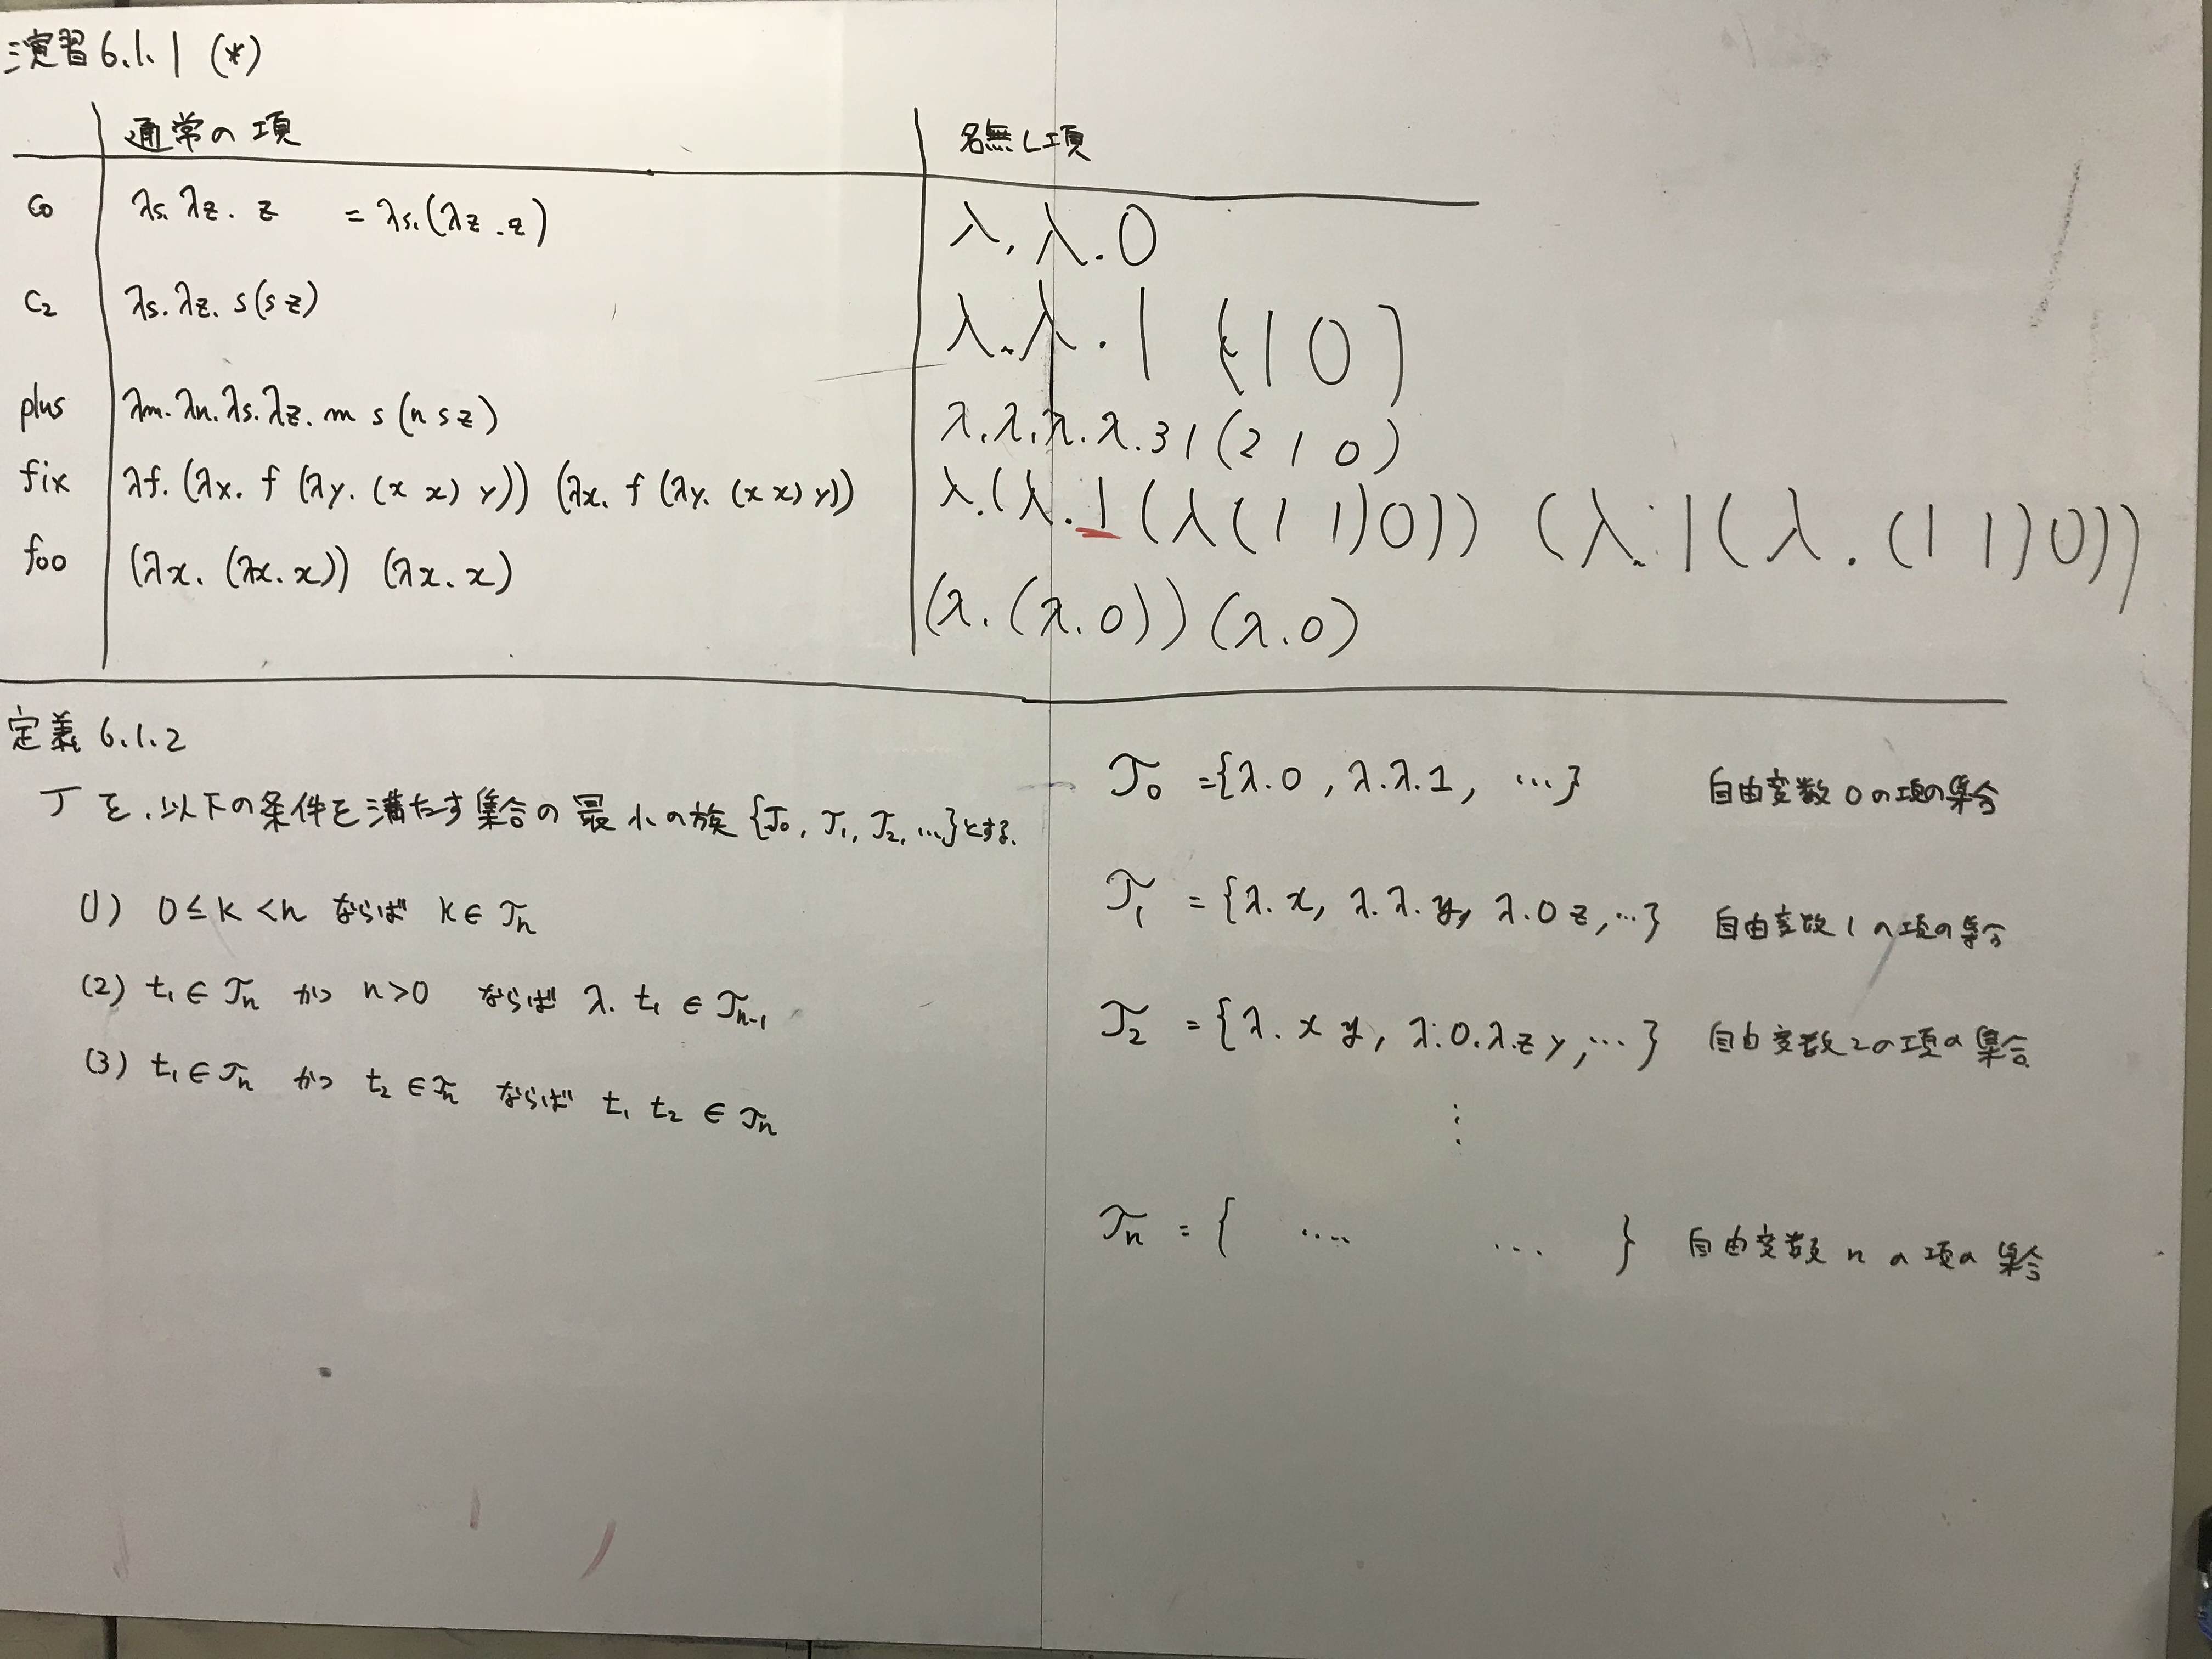 演習6.1.1 (*)
通常の項 名無し項
c₀ λs. λz. z = λs.(λz.z) λ. λ. 0
c₂ λs. λz. s(s z) λ. λ. 1 (1 0)
plus λm. λn. λs. λz. m s (n s z) λ. λ. λ. λ. 3 1 (2 1 0)
fix λf. (λx. f (λy. (x x) y)) (λx. f (λy. (x x) y)) λ. (λ. 1 (λ (1 1) 0)) (λ. 1 (λ. (1 1) 0))
foo (λx. (λx. x)) (λx. x) (λ. (λ. 0)) (λ. 0)
定義 6.1.2
𝒯を、以下の条件を満たす集合の最小の族 {𝒯₀, 𝒯₁, 𝒯₂, ...}とする.
(1) 0 ≤ k < n ならば k ∈ 𝒯n
(2) t₁ ∈ 𝒯n かつ n>0 ならば λ. t₁ ∈ 𝒯n-1
(3) t₁ ∈ 𝒯n かつ t₂ ∈ 𝒯n ならば t₁ t₂ ∈ 𝒯n
𝒯₀ = {λ.0, λ.λ.1, ...} 自由変数0の項の集合
𝒯₁ = {λ.x, λ.λ.y, λ.0 z, ...} 自由変数1の項の集合
𝒯₂ = {λ.x y, λ.0.λ.z y, ...} 自由変数2の項の集合
⋮
𝒯n = { .... ... } 自由変数nの項の集合